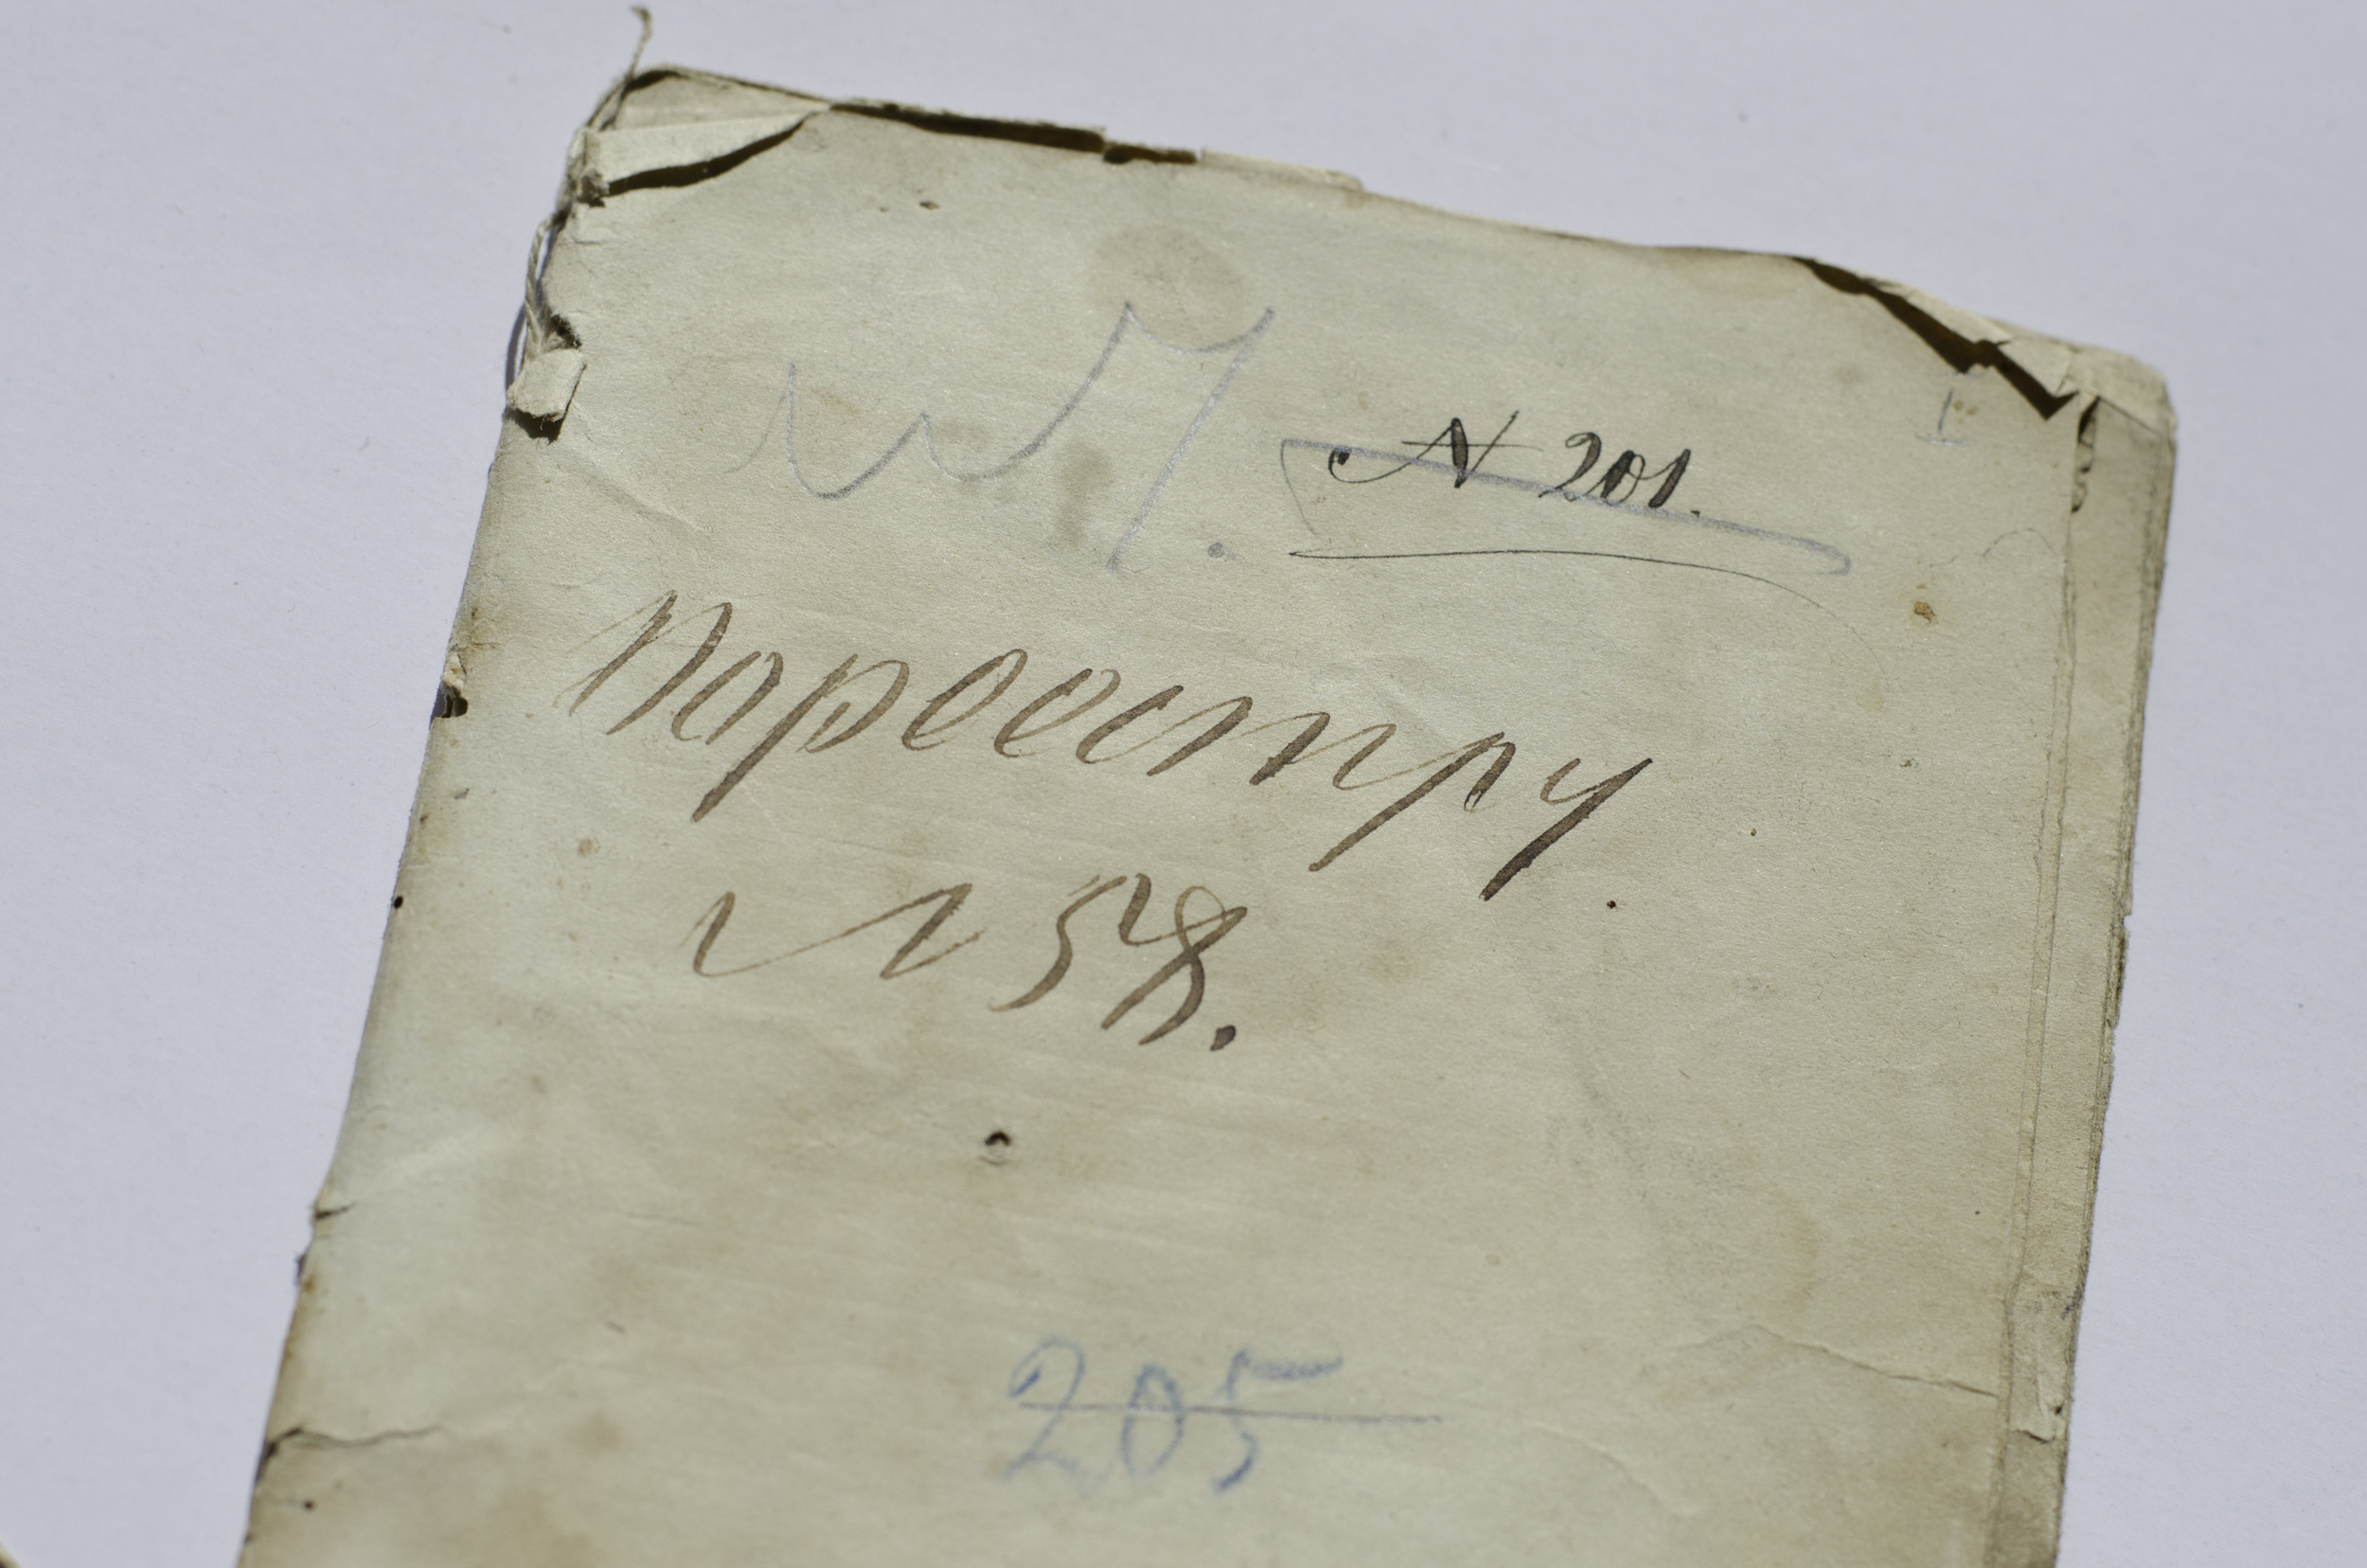 N 7.
N 201.
I
По реестру
N 58.
205